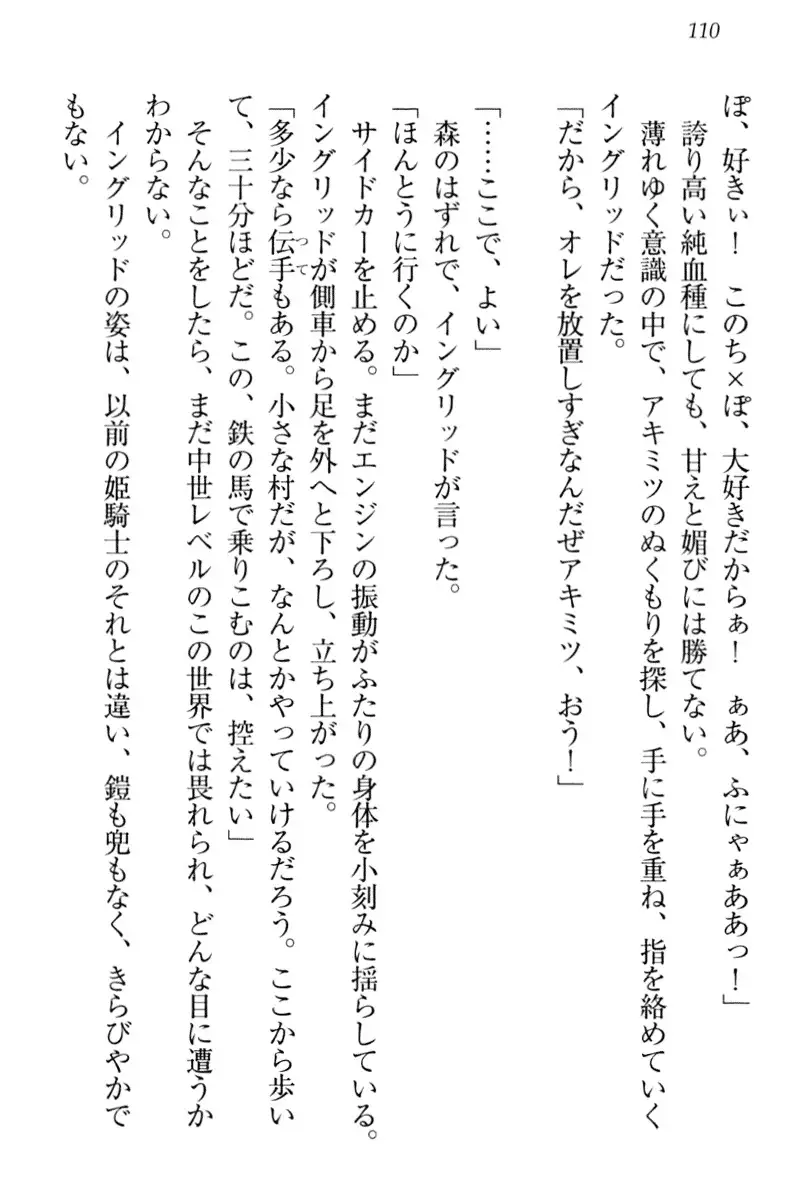 110
ぽ、好きぃ！　このち×ぽ、大好きだからぁ！　ぁあ、ふにゃぁああっ！」
誇り高い純血種にしても、甘えと媚びには勝てない。
薄れゆく意識の中で、アキミツのぬくもりを探し、手に手を重ね、指を絡めていく
イングリッドだった。
「だから、オレを放置しすぎなんだぜアキミツ、おう！」
「……ここで、よい」
森のはずれで、イングリッドが言った。
「ほんとうに行くのか」
サイドカーを止める。まだエンジンの振動がふたりの身体を小刻みに揺らしている。
イングリッドが側車から足を外へと下ろし、立ち上がった。
「多少なら伝手もある。小さな村だが、なんとかやっていけるだろう。ここから歩い
つて
て、三十分ほどだ。この、鉄の馬で乗りこむのは、控えたい」
そんなことをしたら、まだ中世レベルのこの世界では畏れられ、どんな目に遭うか
わからない。
イングリッドの姿は、以前の姫騎士のそれとは違い、鎧も兜もなく、きらびやかで
もない。